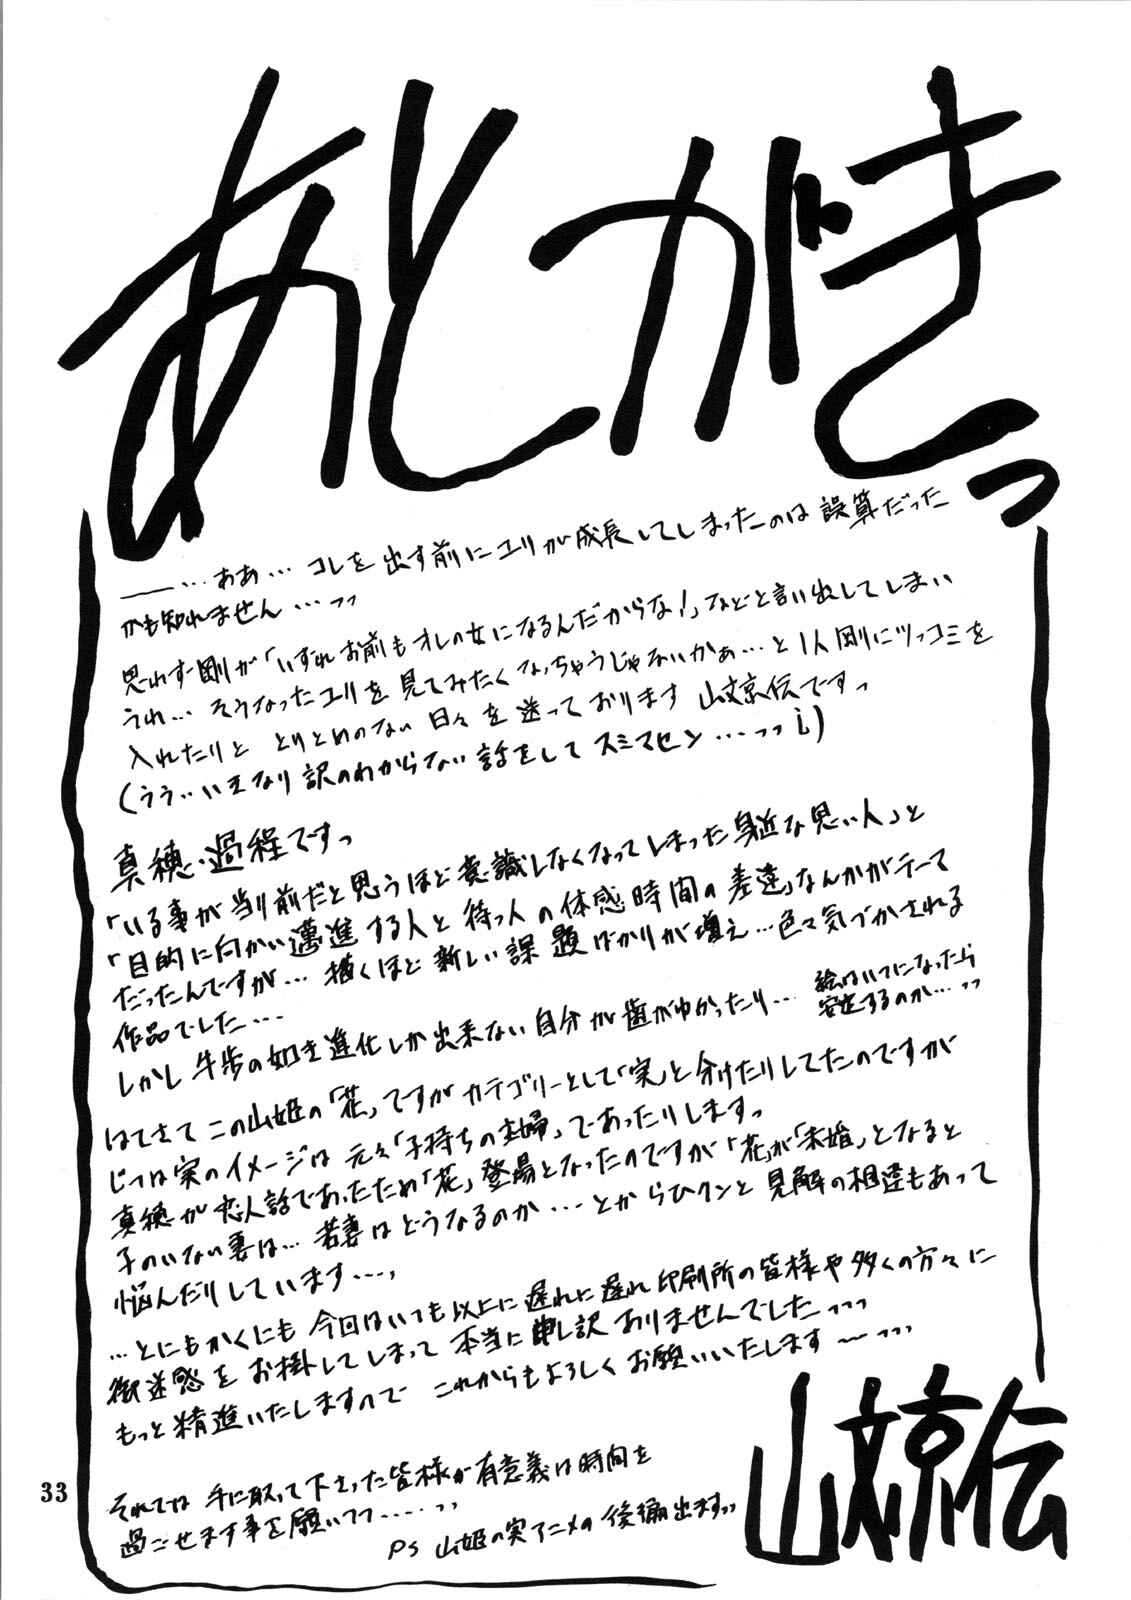 あとがきっ
――…ああ… コレを出す前にユリが成長してしまったのは誤算だった
かも知れません…っっ
思わず剛が「いずれお前もオレの女になるんだからな!」などと言い出してしまい
うれ… そうなったユリを見てみたくなっちゃうじゃないかぁ…と1人剛にツッコミを
入れたりと とりとめのない日々を送っております 山文京伝ですっ
(うう…いきなり訳のわからない話をしてスミマセン…っっ¡)
真穂・過程ですっ
「いる事が当り前だと思うほど意識しなくなってしまった身近な思い人」と
「目的に向かい邁進する人と待つ人の体感時間の差違」なんかがテーマ
だったんですが… 描くほど新しい課題ばかりが増え…色々気づかされる
作品でした…
しかし牛歩の如き進化しか出来ない自分が歯がゆかったり…
絵はいつになったら
安定するのか…っっ
はてさて この山姫の「花」ですが カテゴリーとして「実」と分けたりしてたのですが
じつは実のイメージは元々「子持ちの主婦」であったりしますっ
真穂が恋人話であったため「花」登場となったのですが「花」が「未婚」となると
子のいない妻は… 若妻はどうなるのか…とからひクンと見解の相違もあって
悩んだりしています…,
…とにもかくにも 今回はいつも以上に遅れに遅れ印刷所の皆様や多くの方々に
御迷惑をお掛してしまって 本当に申し訳ありませんでした…っっ
もっと精進いたしますので これからもよろしくお願いいたします〜…っっ
それでは 手に取って下さった皆様が有意義は時間を
過ごせます事を願いつつ……っっ
PS 山姫の実アニメの後編出ますっっ
山文京伝
33